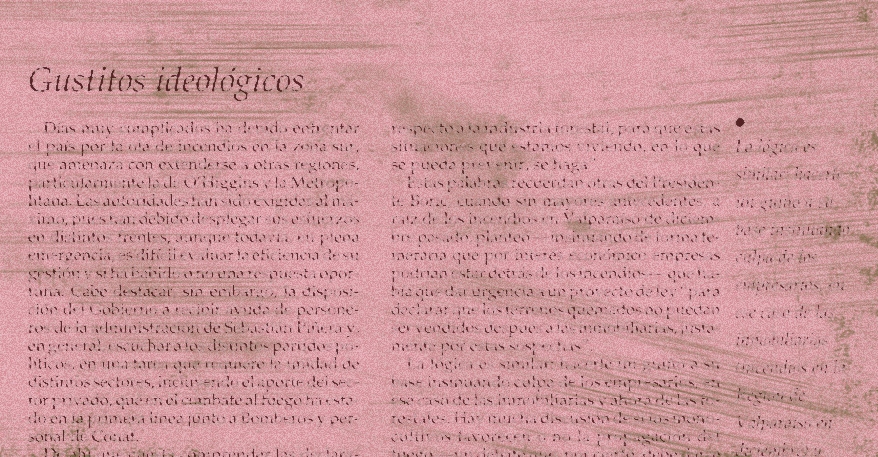 Gustitos ideológicos
Días muy complicados ha debido enfrentar
el país por la ola de incendios en la zona sur,
que amenaza con extenderse a otras regiones,
particularmente la de O'Higgins y la Metropo-
litana. Las autoridades han sido exigidas al má-
ximo, pues han debido desplegar sus esfuerzos
en distintos frentes, aunque todavía en plena
emergencia, es difícil evaluar la eficiencia de su
gestión y si ha habido o no una respuesta opor-
tuna. Cabe destacar, sin embargo, la disposi-
ción del Gobierno a recibir ayuda de persone-
ros de la administración de Sebastián Piñera y,
en general, escuchar a los distintos partidos po-
líticos, en una tarea que requiere la unidad de
distintos sectores, incluyendo el aporte del sec-
tor privado, que en el combate al fuego ha esta-
do en la primera línea junto a Bomberos y per-
sonal de Conaf.
respecto a la industria forestal, para que estas
situaciones que estamos viviendo, en lo que
se pueda prevenir, se haga".
Estas palabras recuerdan otras del Presiden-
te Boric, cuando sin mayores antecedentes, a
raíz de los incendios en Valparaíso de diciem-
bre pasado, planteó — insinuando de forma te-
meraria que por interés económico empresas
podrían estar detrás de los incendios— que ha-
bía que dar urgencia a un proyecto de ley "para
declarar que los terrenos quemados no puedan
ser vendidos después a las inmobiliarias, justa-
mente por estas sospechas".
La lógica es similar: hacerle un guiño a su
base insinuando la culpa de los empresarios, en
ese caso de las inmobiliarias y ahora de las fo-
restales. Hay mucha discusión de si los mono-
cultivos favorecen o no la propagación del
La lógica es
similar: hacerle
un guiño a su
base insinuando
culpa de los
empresarios, en
ese caso de las
inmobiliarias
incendios en la
Región de
Valparaíso